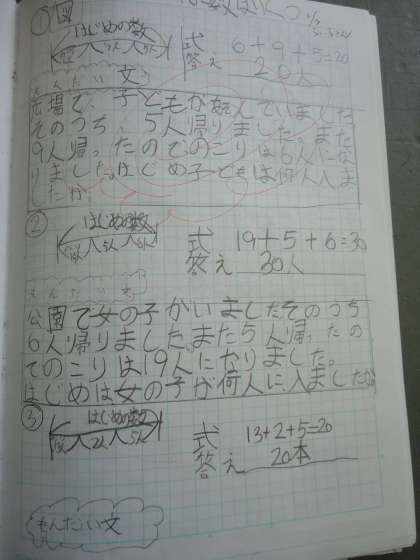 ①図
はじめの数
式 6+9+5=20
答え 20人
もんだい文
広場で、子どもが遊んでいました
そのうち、5人帰りました。また
9人帰ったのでのこりは6人にな
りました。はじめ子どもは何人いま
したか。
②
はじめの数
19人 5人 6人
式 19+5+6=30
答え 30人
もんだい文
公園で女の子がいましたそのうち
6人帰りました。また5人帰ったの
でのこりは19人になりました。
はじめは女の子が何人に入ましたか
③
はじめの数
式 13+2+5=20
答え 20本
もんだい文